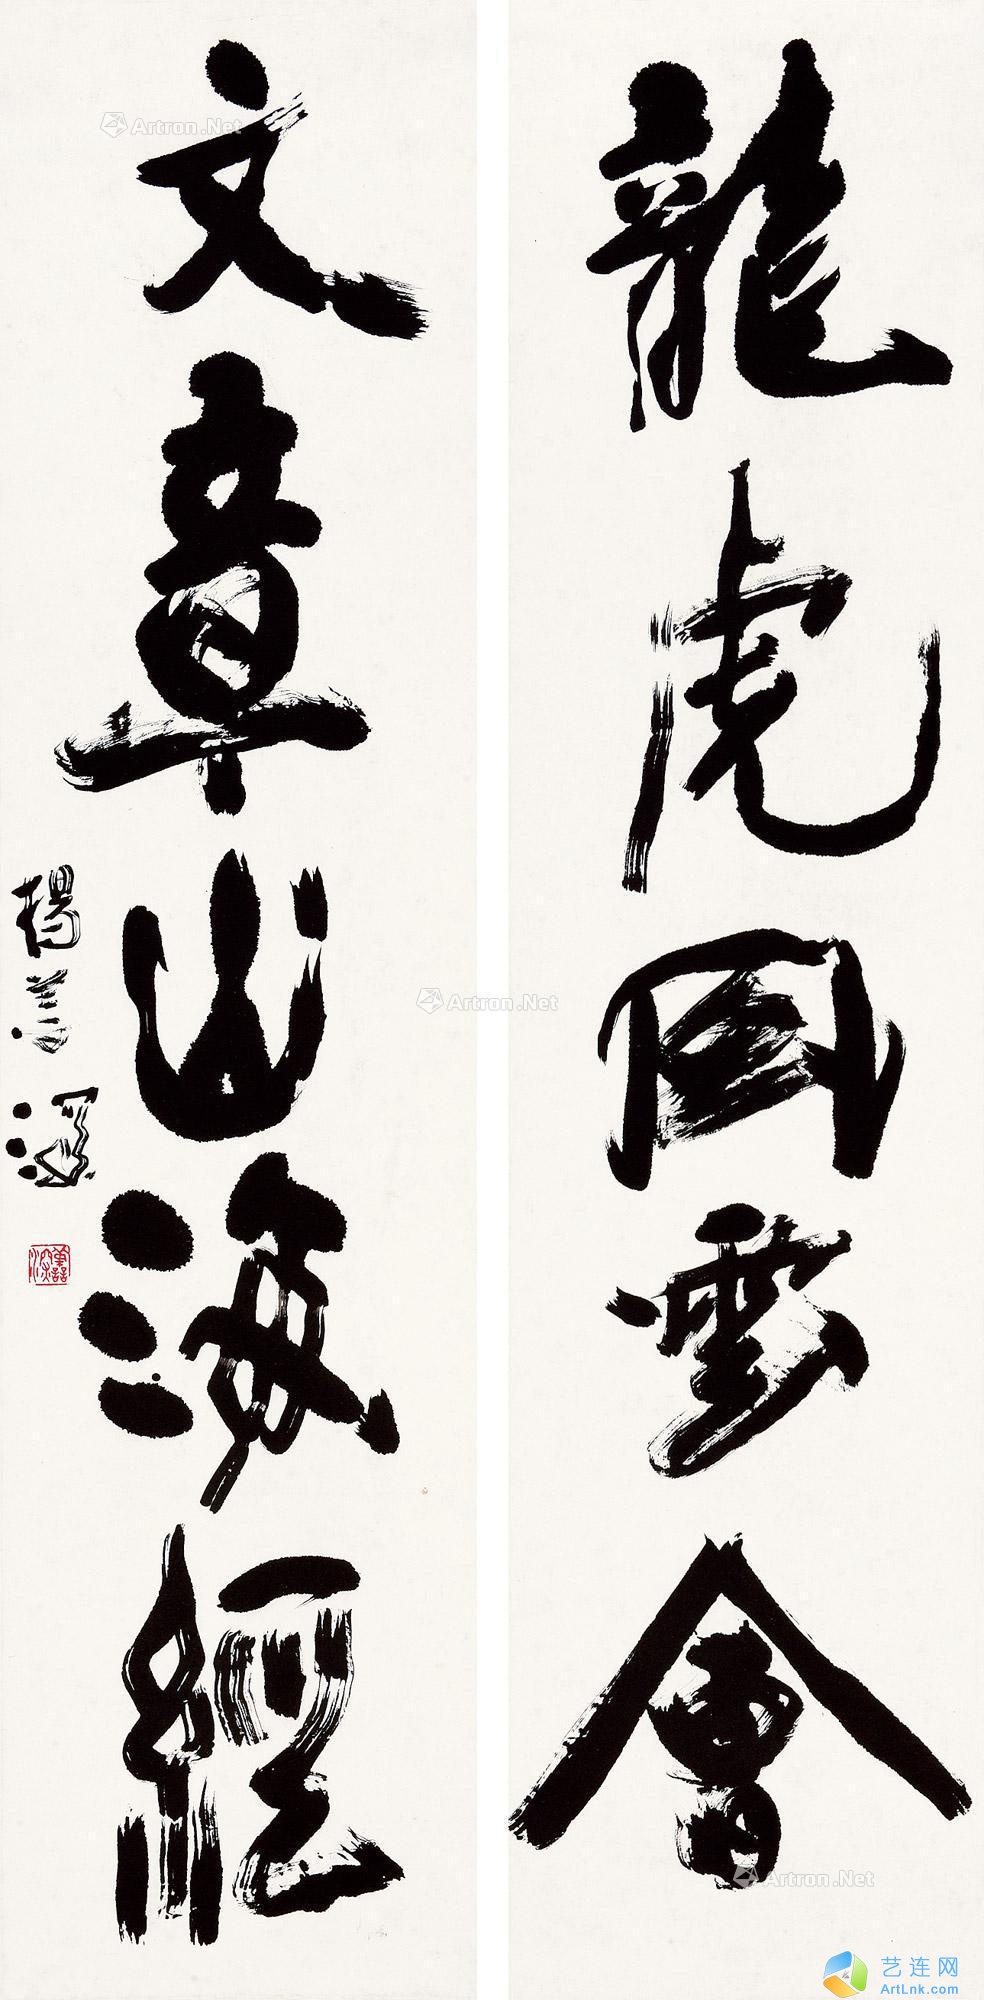 龍虎風雲會
文章山海經
楊善深
善深
Artron.Net
Artron.Net
Artron.Net
艺连网
ArtLnk.com